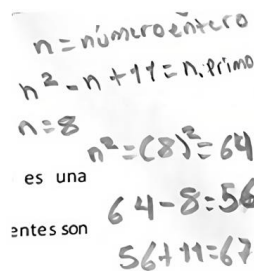 n = número entero
n² - n + 11 = n. primo
n = 8
n² = (8)² = 64
es una
64 - 8 = 56
entes son
56 + 11 = 67